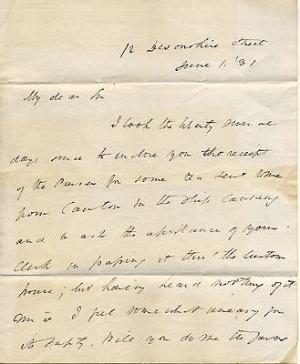 12 Devonshire Street
June 1. '31
My dear Sir
I took the liberty some
days since to inclose you the receipt
of the Purser for some tea sent home
from Canton in the ship Canning
and to ask the assistance of your
Clerk in passing it thro' the Custom
House; but having heard nothing of it
I feel somewhat uneasy for
its safety. Will you do me the favor